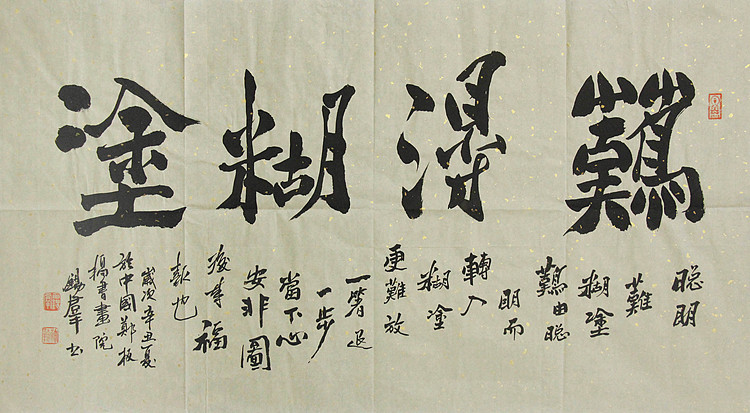 難得糊塗
聰明
難
糊塗
難由聰
明而
轉入
糊塗
更難放
一著退
一步
當下心
安非圖
後來福
報也
歲次辛丑夏
於中國鄭板
橋書畫院
錫群书